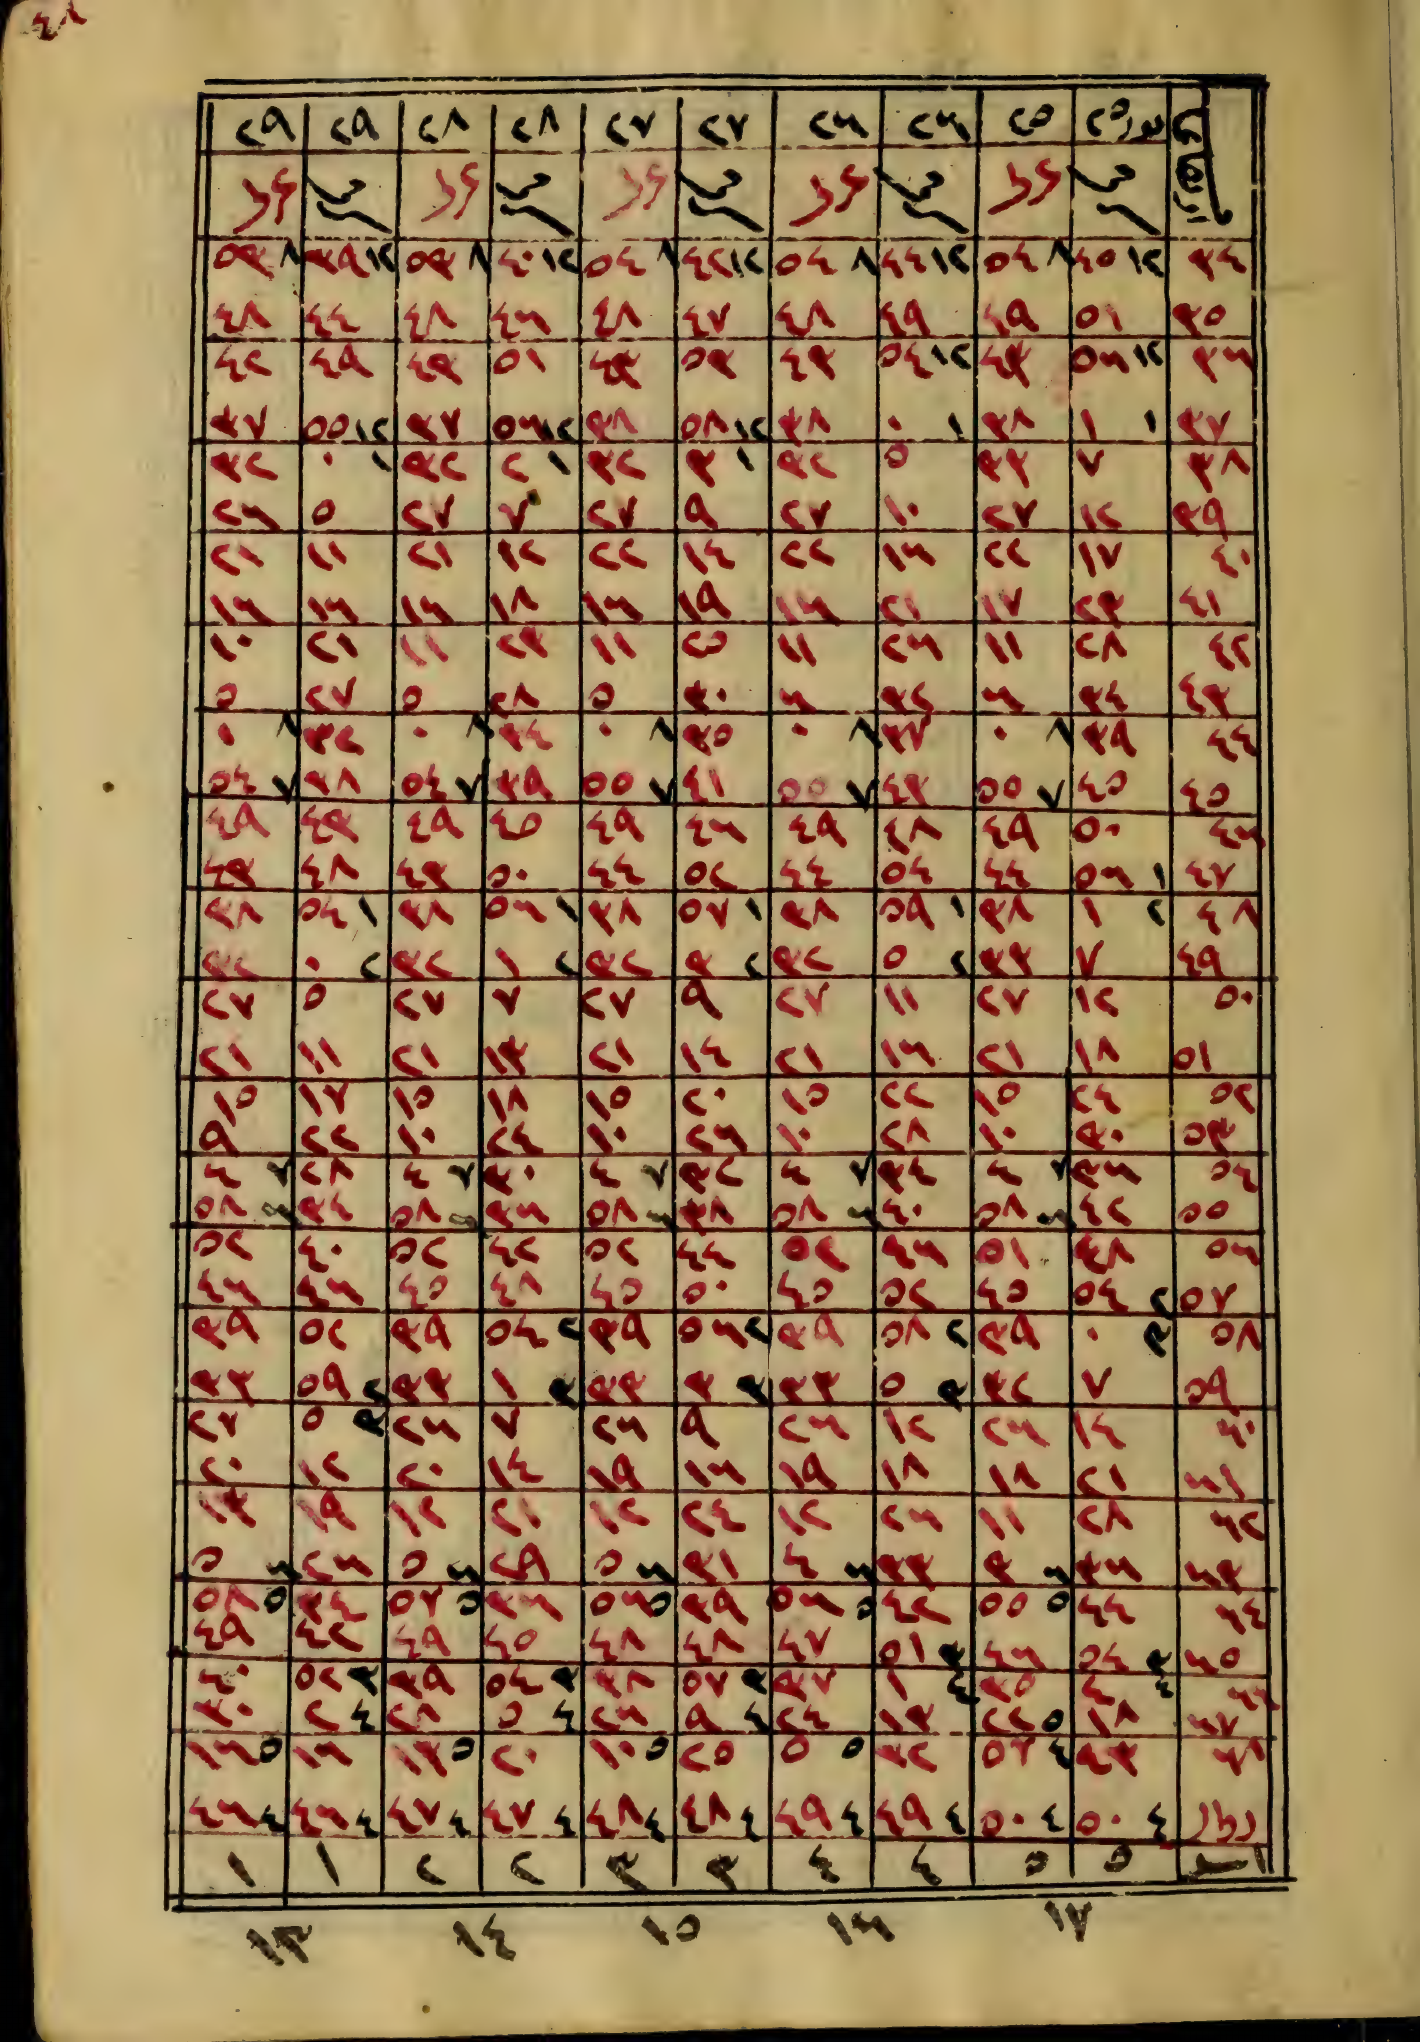 ٤٨
٢٥ ٢٥ ٢٦ ٢٦ ٢٧ ٢٧ ٢٨ ٢٨ ٢٩ ٢٩
٣٤ ١٢ ٤٥ ٨ ٥٤ ١٢ ٤٤ ٨ ٥٤ ١٢ ٤٢ ٨ ٥٤ ١٢ ٤٠ ٨ ٥٣ ١٢ ٣٩ ٨ ٥٣
٣٥ ٥١ ٤٩ ٤٩ ٤٨ ٤٧ ٤٨ ٤٦ ٤٨ ٤٤ ٤٨
٣٦ ١٢ ٥٦ ٤٣ ١٢ ٥٤ ٤٣ ٥٣ ٤٣ ٥١ ٤٣ ٤٩ ٤٢
٣٧ ١ ١ ٣٨ ١ ٠ ٣٨ ١٢ ٥٨ ٣٨ ١٢ ٥٦ ٣٧ ١٢ ٥٥ ٣٧
٣٨ ٧ ٣٣ ٥ ٣٢ ١ ٣ ٣٢ ١ ٢ ٣٢ ١ ٠ ٣٢
٣٩ ١٢ ٢٧ ١٠ ٢٧ ٩ ٢٧ ٧ ٢٧ ٥ ٢٦
٤٠ ١٧ ٢٢ ١٦ ٢٢ ١٤ ٢٢ ١٢ ٢١ ١١ ٢١
٤١ ٢٣ ١٧ ٢١ ١٦ ١٩ ١٦ ١٨ ١٦ ١٦ ١٦
٤٢ ٢٨ ١١ ٢٦ ١١ ٢٥ ١١ ٢٣ ١١ ٢١ ١٠
٤٣ ٣٤ ٦ ٣٢ ٦ ٣٠ ٥ ٢٨ ٥ ٢٧ ٥
٤٤ ٣٩ ٨ ٠ ٣٧ ٨ ٠ ٣٥ ٨ ٠ ٣٤ ٨ ٠ ٣٢ ٨ ٠
٤٥ ٤٥ ٧ ٥٥ ٤٣ ٧ ٥٥ ٤١ ٧ ٥٥ ٣٩ ٧ ٥٤ ٣٨ ٧ ٥٤
٤٦ ٥٠ ٤٩ ٤٨ ٤٩ ٤٦ ٤٩ ٤٥ ٤٩ ٤٣ ٤٩
٤٧ ١ ٥٦ ٤٤ ٥٤ ٤٤ ٥٢ ٤٤ ٥٠ ٤٣ ٤٨ ٤٣
٤٨ ٢ ١ ٣٨ ١ ٥٩ ٣٨ ١ ٥٧ ٣٨ ١ ٥٦ ٣٨ ١ ٥٤ ٣٨
٤٩ ٧ ٣٣ ٢ ٥ ٣٢ ٢ ٣ ٣٢ ٢ ١ ٣٢ ٢ ٠ ٣٢
٥٠ ١٢ ٢٧ ١١ ٢٧ ٩ ٢٧ ٧ ٢٧ ٥ ٢٧
٥١ ١٨ ٢١ ١٦ ٢١ ١٤ ٢١ ١٣ ٢١ ١١ ٢١
٥٢ ٢٤ ١٥ ٢٢ ١٥ ٢٠ ١٥ ١٨ ١٥ ١٧ ١٥
٥٣ ٣٠ ١٠ ٢٨ ١٠ ٢٦ ١٠ ٢٤ ١٠ ٢٢ ٩
٥٤ ٣٦ ٧ ٤ ٣٤ ٧ ٤ ٣٢ ٧ ٤ ٣٠ ٧ ٤ ٢٨ ٧ ٤
٥٥ ٤٢ ٦ ٥٨ ٤٠ ٦ ٥٨ ٣٨ ٦ ٥٨ ٣٦ ٦ ٥٨ ٣٤ ٦ ٥٨
٥٦ ٤٨ ٥١ ٤٦ ٥٢ ٤٤ ٥٢ ٤٢ ٥٢ ٤٠ ٥٢
٥٧ ٢ ٥٤ ٤٥ ٥٢ ٤٥ ٥٠ ٤٥ ٤٨ ٤٥ ٤٦ ٤٦
٥٨ ٣ ٠ ٣٩ ٢ ٥٨ ٣٩ ٢ ٥٦ ٣٩ ٢ ٥٤ ٣٩ ٥٢ ٣٩
٥٩ ٧ ٣٢ ٣ ٥ ٣٣ ٣ ٣ ٣٣ ٣ ١ ٣٣ ٢ ٥٩ ٣٣
٦٠ ١٤ ٢٦ ١٢ ٢٦ ٩ ٢٦ ٧ ٢٦ ٣ ٥ ٢٧
٦١ ٢١ ١٨ ١٨ ١٩ ١٦ ١٩ ١٤ ٢٠ ١٢ ٢٠
٦٢ ٢٨ ١١ ٢٦ ١٢ ٢٤ ١٢ ٢١ ١٢ ١٩ ١٣
٦٣ ٣٦ ٦ ٣ ٣٣ ٦ ٤ ٣١ ٦ ٥ ٢٩ ٦ ٥ ٢٦ ٦ ٥
٦٤ ٤٤ ٥ ٥٥ ٤٢ ٥ ٥٦ ٣٩ ٥ ٥٦ ٣٦ ٥ ٥٧ ٣٤ ٥ ٥٨
٦٥ ٣ ٥٤ ٤٦ ٣ ٥١ ٤٧ ٤٨ ٤٨ ٤٥ ٤٩ ٤٢ ٤٩
٦٦ ٤ ٤ ٣٥ ٤ ١ ٣٧ ٣ ٥٧ ٣٨ ٣ ٥٤ ٣٩ ٣ ٥٢ ٤٠
٦٧ ١٨ ٥ ٢٢ ١٣ ٢٤ ٤ ٩ ٢٦ ٤ ٥ ٢٨ ٤ ٢ ٣٠
٦٨ ٣٣ ٤ ٥٧ ٣٢ ٥ ٥ ٢٥ ٥ ١٠ ٢٠ ٥ ١٣ ١٦ ٥ ١٦
٤ ٥٠ ٤ ٥٠ ٤ ٤٩ ٤ ٤٩ ٤ ٤٨ ٤ ٤٨ ٤ ٤٧ ٤ ٤٧ ٤ ٤٦ ٤ ٤٦
٥ ٥ ٤ ٤ ٣ ٣ ٢ ٢ ١ ١
١٧ ١٦ ١٥ ١٤ ١٣